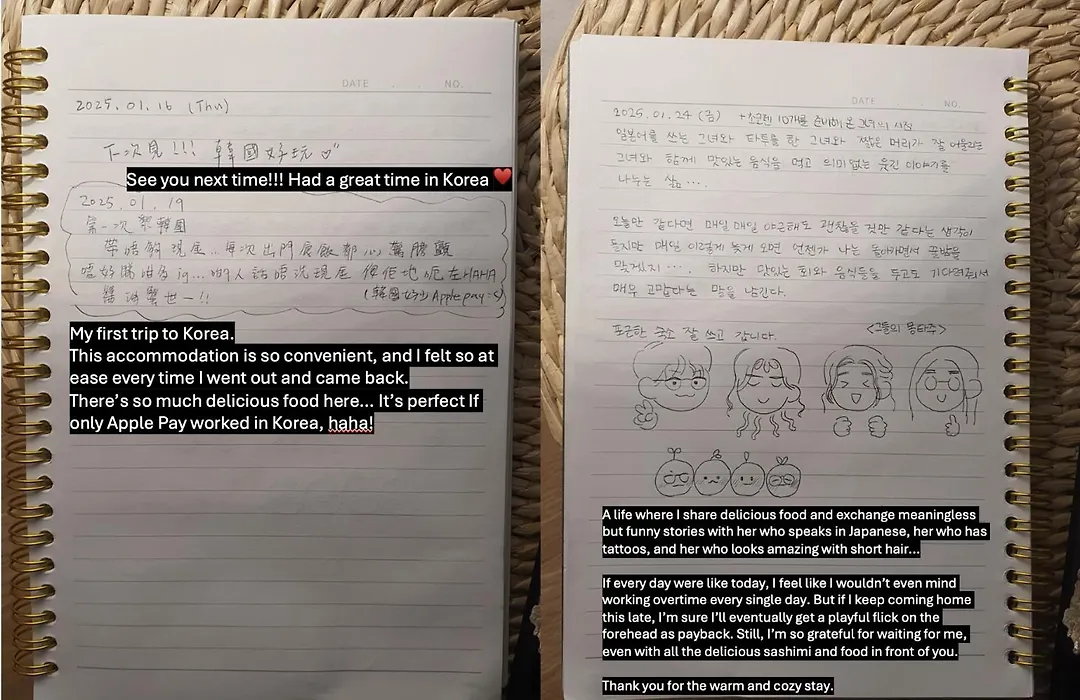 DATE . . NO.
2025.01.16 (Thu)
下次見!!! 韓國好玩♡
See you next time!!! Had a great time in Korea ❤️
2025.01.19
第一次嚟韓國
帶唔夠現金..每次出門食飯都心驚膽顫
(韓國好少Apple pay:<)
My first trip to Korea.
This accommodation is so convenient, and I felt so at
ease every time I went out and came back.
There's so much delicious food here... It's perfect If
only Apple Pay worked in Korea, haha!
DATE . . NO.
2025.01.24 (금) +소코텐 10개를 준비해 온 그녀의 시점
일본어를 쓰는 그녀와 타투를 한 그녀와 짧은 머리가 잘 어울리는
그녀와 함께 맛있는 음식을 먹고 의미없는 웃긴 이야기를
나누는 삶....
오늘만 같다면 매일 매일 야근해도 괜찮을 것만 같다는 생각이
들지만 매일 이렇게 늦게 오면 언젠가 나는 돌아가면서 꿀밤을
맞겠지.... 하지만 맛있는 회와 음식들을 두고도 기다려주셔서
매우 고맙다는 말을 남긴다.
포근한 숙소 잘 쓰고 갑니다.
<그들의 몽타주>
A life where I share delicious food and exchange meaningless
but funny stories with her who speaks in Japanese, her who has
tattoos, and her who looks amazing with short hair...
If every day were like today, I feel like I wouldn't even mind
working overtime every single day. But if I keep coming home
this late, I'm sure I'll eventually get a playful flick on the
forehead as payback. Still, I'm so grateful for waiting for me,
even with all the delicious sashimi and food in front of you.
Thank you for the warm and cozy stay.